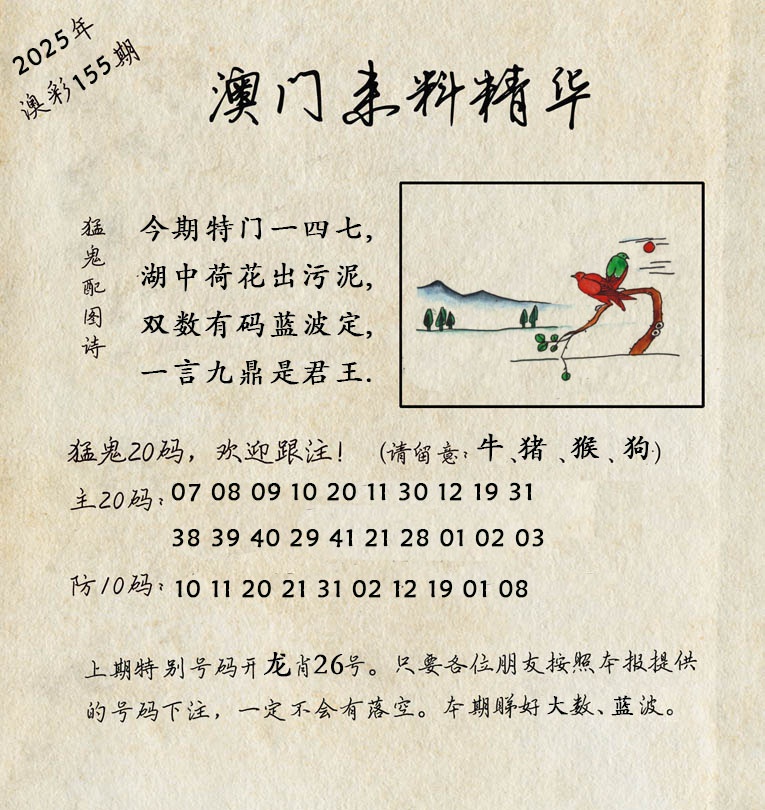 2025年
澳彩155期
澳门来料精华
猛鬼配图诗
今期特门一四七,
湖中荷花出污泥,
双数有码蓝波定,
一言九鼎是君王.
猛鬼20码，欢迎跟注！(请留意：牛、猪、猴、狗)
主20码：07 08 09 10 20 11 30 12 19 31
38 39 40 29 41 21 28 01 02 03
防10码：10 11 20 21 31 02 12 19 01 08
上期特别号码开龙肖26号。只要各位朋友按照本报提供
的号码下注，一定不会有落空。本期睇好大数、蓝波。